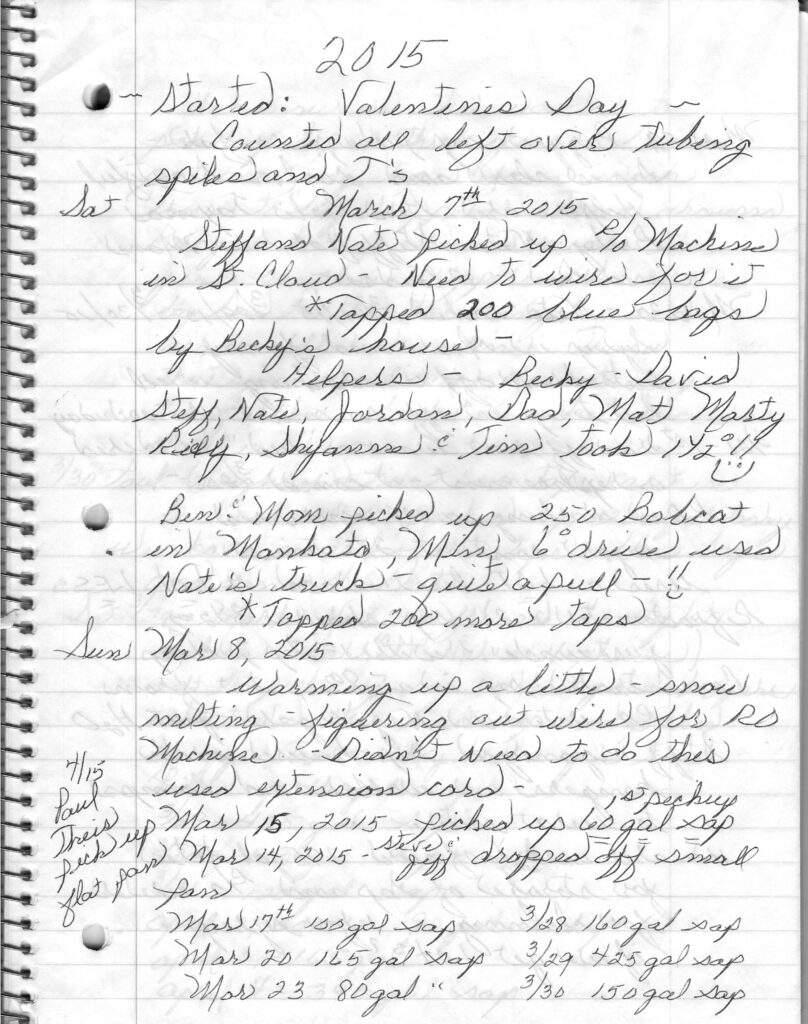 2015
~ Started: Valentines Day ~
Counted all left over tubing
spiles and T's
Sat March 7th 2015
Steff and Nate picked up R/O Machine
in St. Cloud - Need to wire for it
*Tapped 200 blue bags
by Becky's house -
Helpers - Becky - David
Steff, Nate, Jordan, Dad, Mat, Marty
Ricky, Shyanne & Tim took 1 1/2°!!
Ben & Mom picked up 250 Bobcat
in Mankato, Minn 6° drive used
Nate's truck - quite a pull - !!
*Tapped 200 more taps
Sun Mar 8, 2015
Warming up a little - snow
melting - figuering out wire for RO
Machine - Didn't need to do this
used extension cord -
1st pickup
Mar 15, 2015 picked up 60 gal sap
Steve &
Mar 14, 2015 - Jeff dropped off small
pan
4/15
Paul
Theis
pick up
flat pan
Mar 17th 100 gal sap 3/28 160 gal sap
Mar 20 165 gal sap 3/29 425 gal sap
Mar 23 80 gal " 3/30 150 gal sap